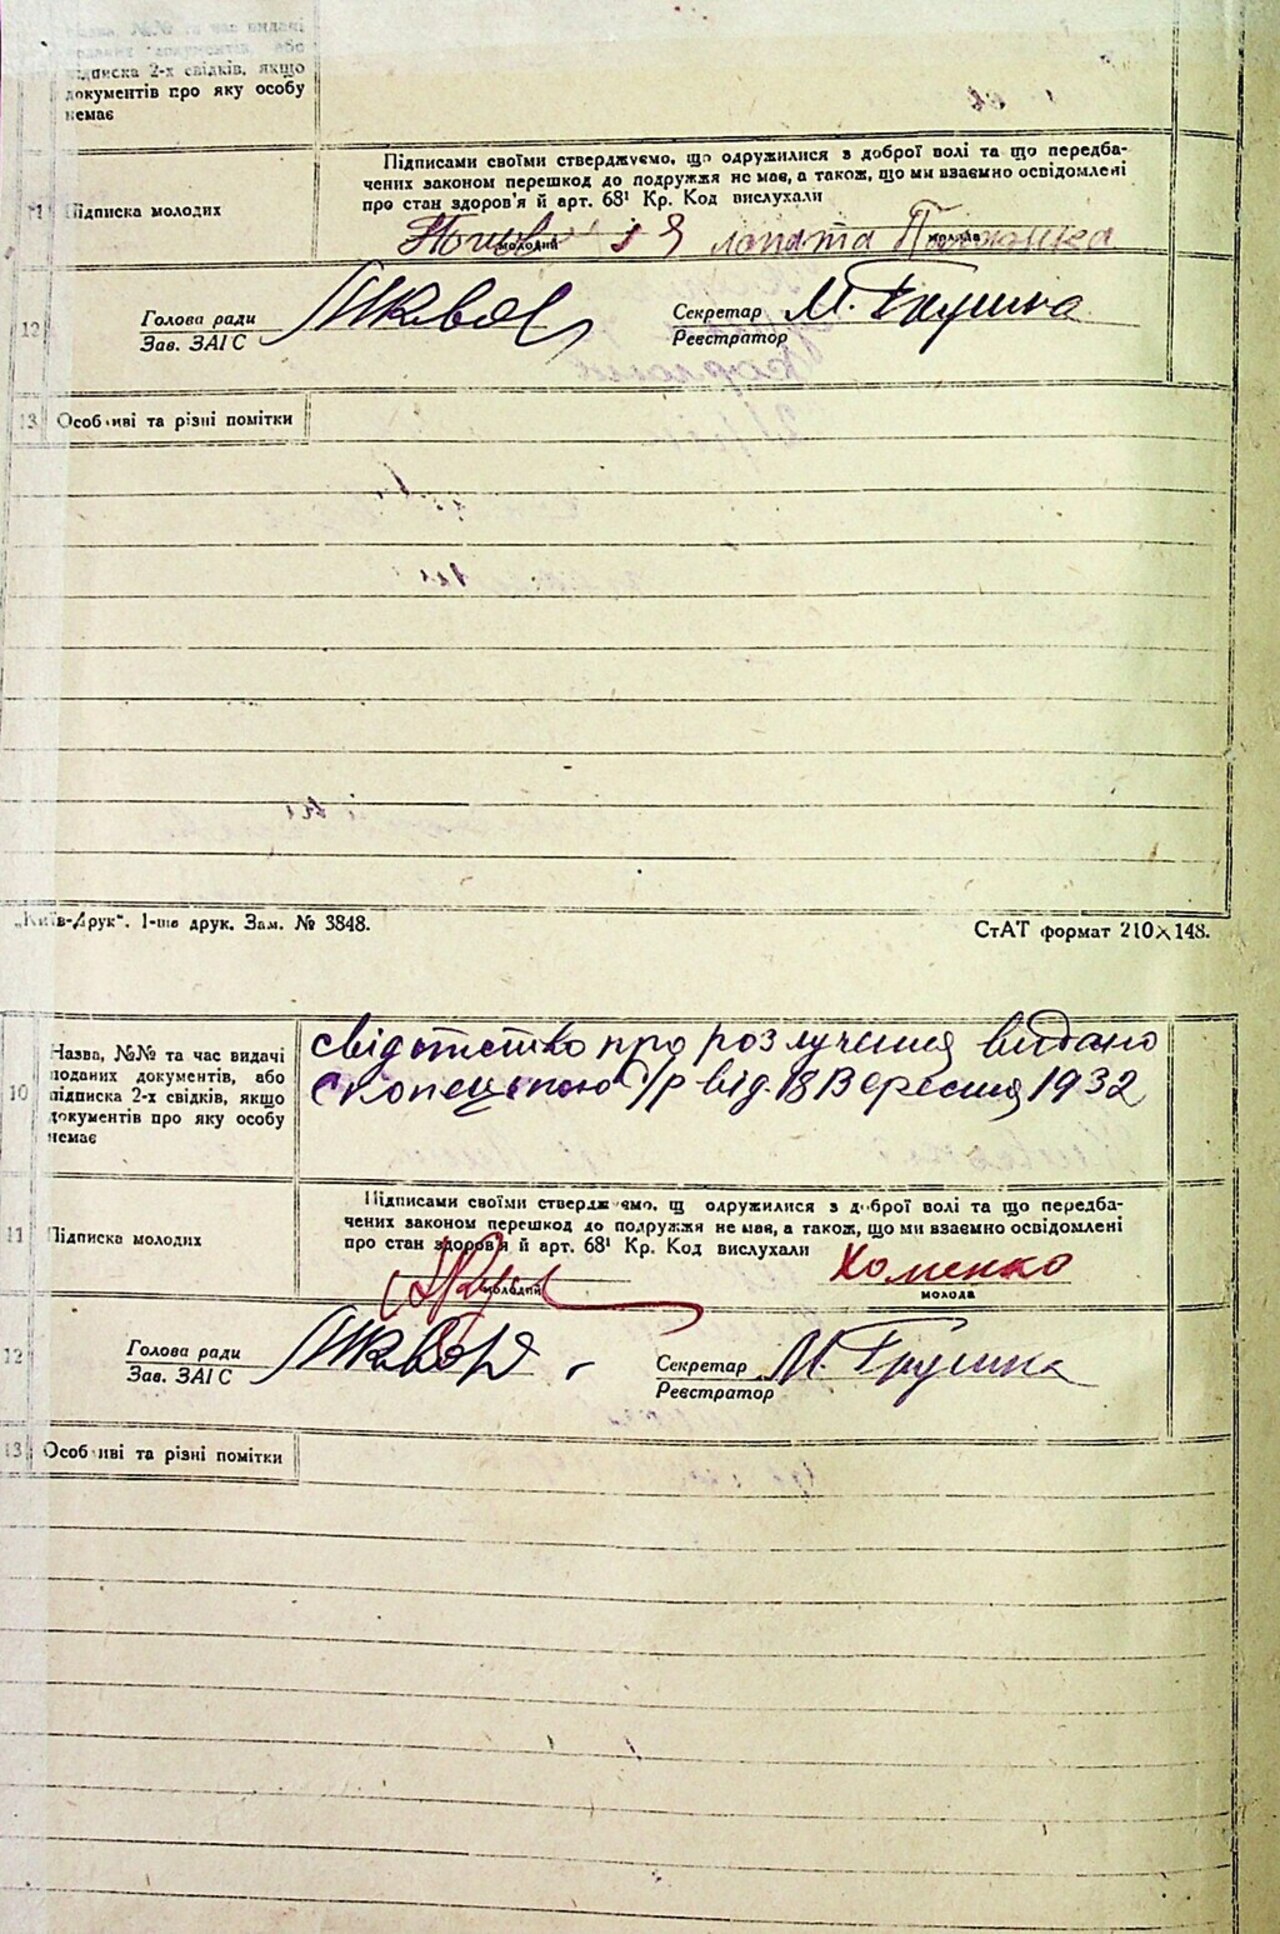 підписка 2-х свідків, якщо
документів про яку особу
немає
Підписами своїми стверджуємо, що одружилися з доброї волі та що передба-
чених законом перешкод до подружжя не має, а також, що ми взаємно освідомлені
про стан здоров'я й арт. 68¹ Кр. Код вислухали
11 Підписка молодих
Я лопата
молодий молода
12 Голова ради Секретар М. Грушка
Зав. ЗАГС Реєстратор
13 Особливі та різні помітки
„Київ-Друк“. 1-ше друк. Зам. № 3848. СтАТ формат 210×148.
10 Назва, №№ та час видачі
поданих документів, або
підписка 2-х свідків, якщо
документів про яку особу
немає
свідотство про розлучення видано
с/р від 18 Вересня 1932
Підписами своїми стверджуємо, що одружилися з доброї волі та що передба-
чених законом перешкод до подружжя не має, а також, що ми взаємно освідомлені
про стан здоров'я й арт. 68¹ Кр. Код вислухали
11 Підписка молодих
Хоменко
молодий молода
12 Голова ради Секретар М. Грушка
Зав. ЗАГС Реєстратор
13 Особливі та різні помітки